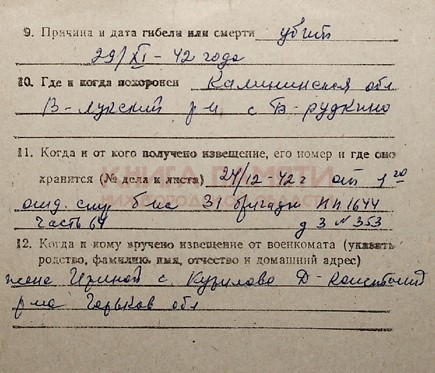 9. Причина и дата гибели или смерти убит
29/XI - 42 года
10. Где и когда похоронен Калининская обл
В-Лукский р-н с Б-Рудкино
11. Когда и от кого получено извещение, его номер и где оно
хранится (№ дела и листа) 24/12-42 г от 1го
КНИГА ПАМЯТИ
31 бригады ПП 1644
часть 64 д 3 № 353
12. Когда и кому вручено извещение от военкомата (указать
родство, фамилию, имя, отчество и домашний адрес)
жена с. Курилово Д-Константинов
р-на Горьков обл